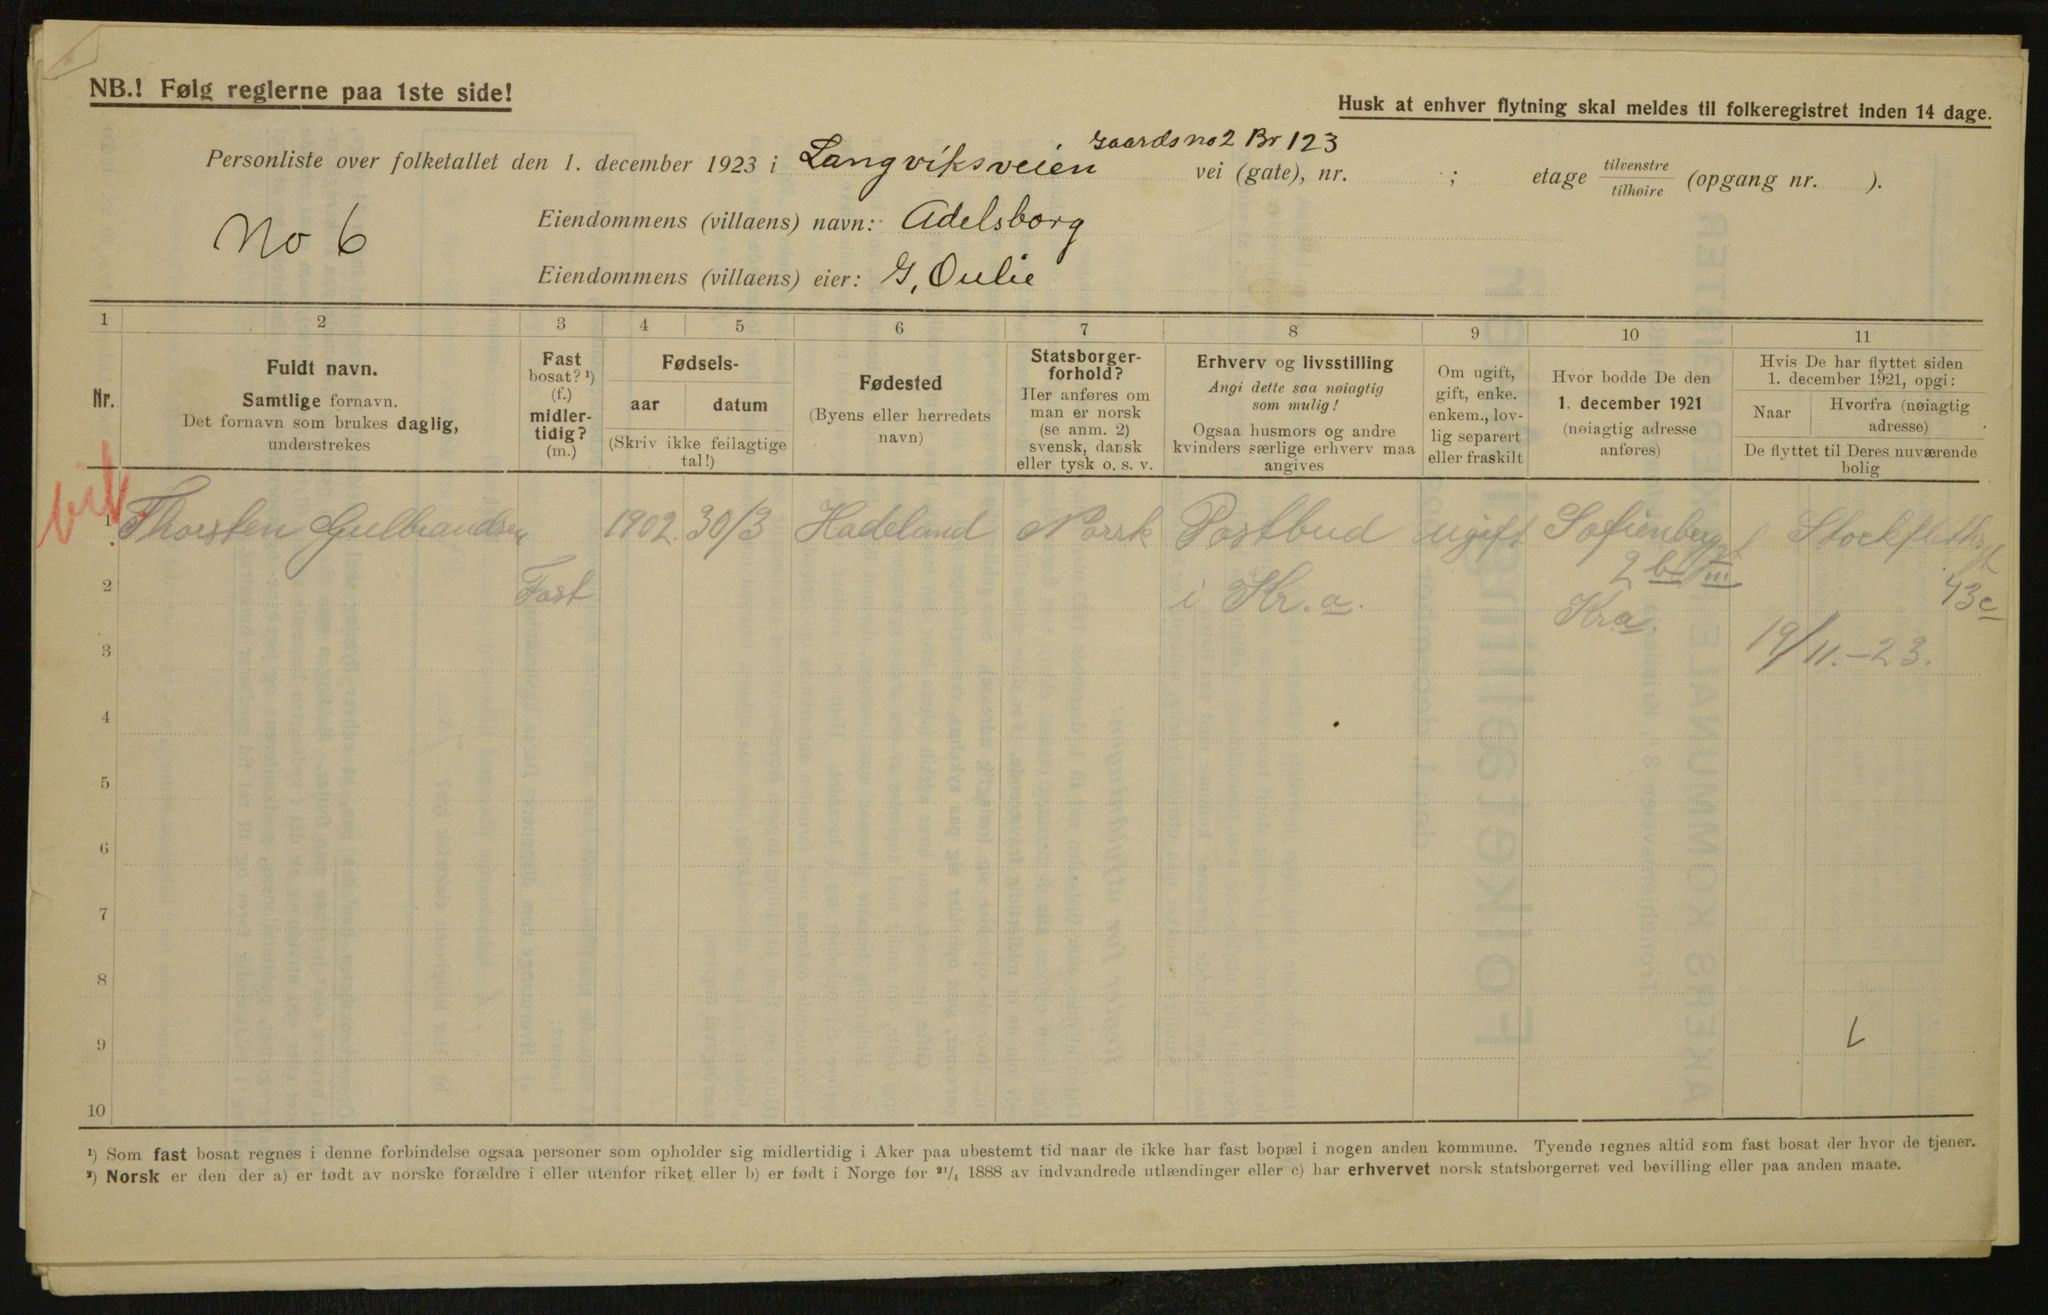 NB.! Følg reglerne paa 1ste side!
Husk at enhver flytning skal meldes til folkeregistret inden 14 dage.
Gaards no 2 Br 123
Personliste over folketallet den 1. december 1923 i Langviksveien vei (gate), nr. ; etage tilvenstre tilhøire (opgang nr. ).
No 6
Eiendommens (villaens) navn: Adelsborg
Eiendommens (villaens) eier: G. Oulie
1 2 3 4 5 6 7 8 9 10 11
Nr.
Fuldt navn.
Samtlige fornavn.
Det fornavn som brukes daglig,
understrekes
Fast
bosat? ¹)
(f.)
midler-
tidig?
(m.)
Fødsels-
aar datum
(Skriv ikke feilagtige
tal!)
Fødested
(Byens eller herredets
navn)
Statsborger-
forhold?
Her anføres om
man er norsk
(se anm. 2)
svensk, dansk
eller tysk o. s. v.
Erhverv og livsstilling
Angi dette saa nøiagtig
som mulig!
Ogsaa husmors og andre
kvinders særlige erhverv maa
angives
Om ugift,
gift, enke.
enkem., lov-
lig separert
eller fraskilt
Hvor bodde De den
1. december 1921
(nøiagtig adresse
anføres)
Hvis De har flyttet siden
1. december 1921, opgi:
Naar
Hvorfra (nøiagtig
adresse)
De flyttet til Deres nuværende
bolig
1 Thorsten Gulbrandsen 1902 30/3 Hadeland Norsk Postbud ugift Sofienberggt Stockflethsgt
2 Fast i Kr.a. 2 b III 43c
Kra.
3 19/11.-23.
4
5
6
7
8
9
10
¹) Som fast bosat regnes i denne forbindelse ogsaa personer som opholder sig midlertidig i Aker paa ubestemt tid naar de ikke har fast bopæl i nogen anden kommune. Tyende regnes altid som fast bosat der hvor de tjener.
²) Norsk er den der a) er født av norske forældre i eller utenfor riket eller b) er født i Norge før ²¹/₄ 1888 av indvandrede utlændinger eller c) har erhvervet norsk statsborgerret ved bevilling eller paa anden maate.